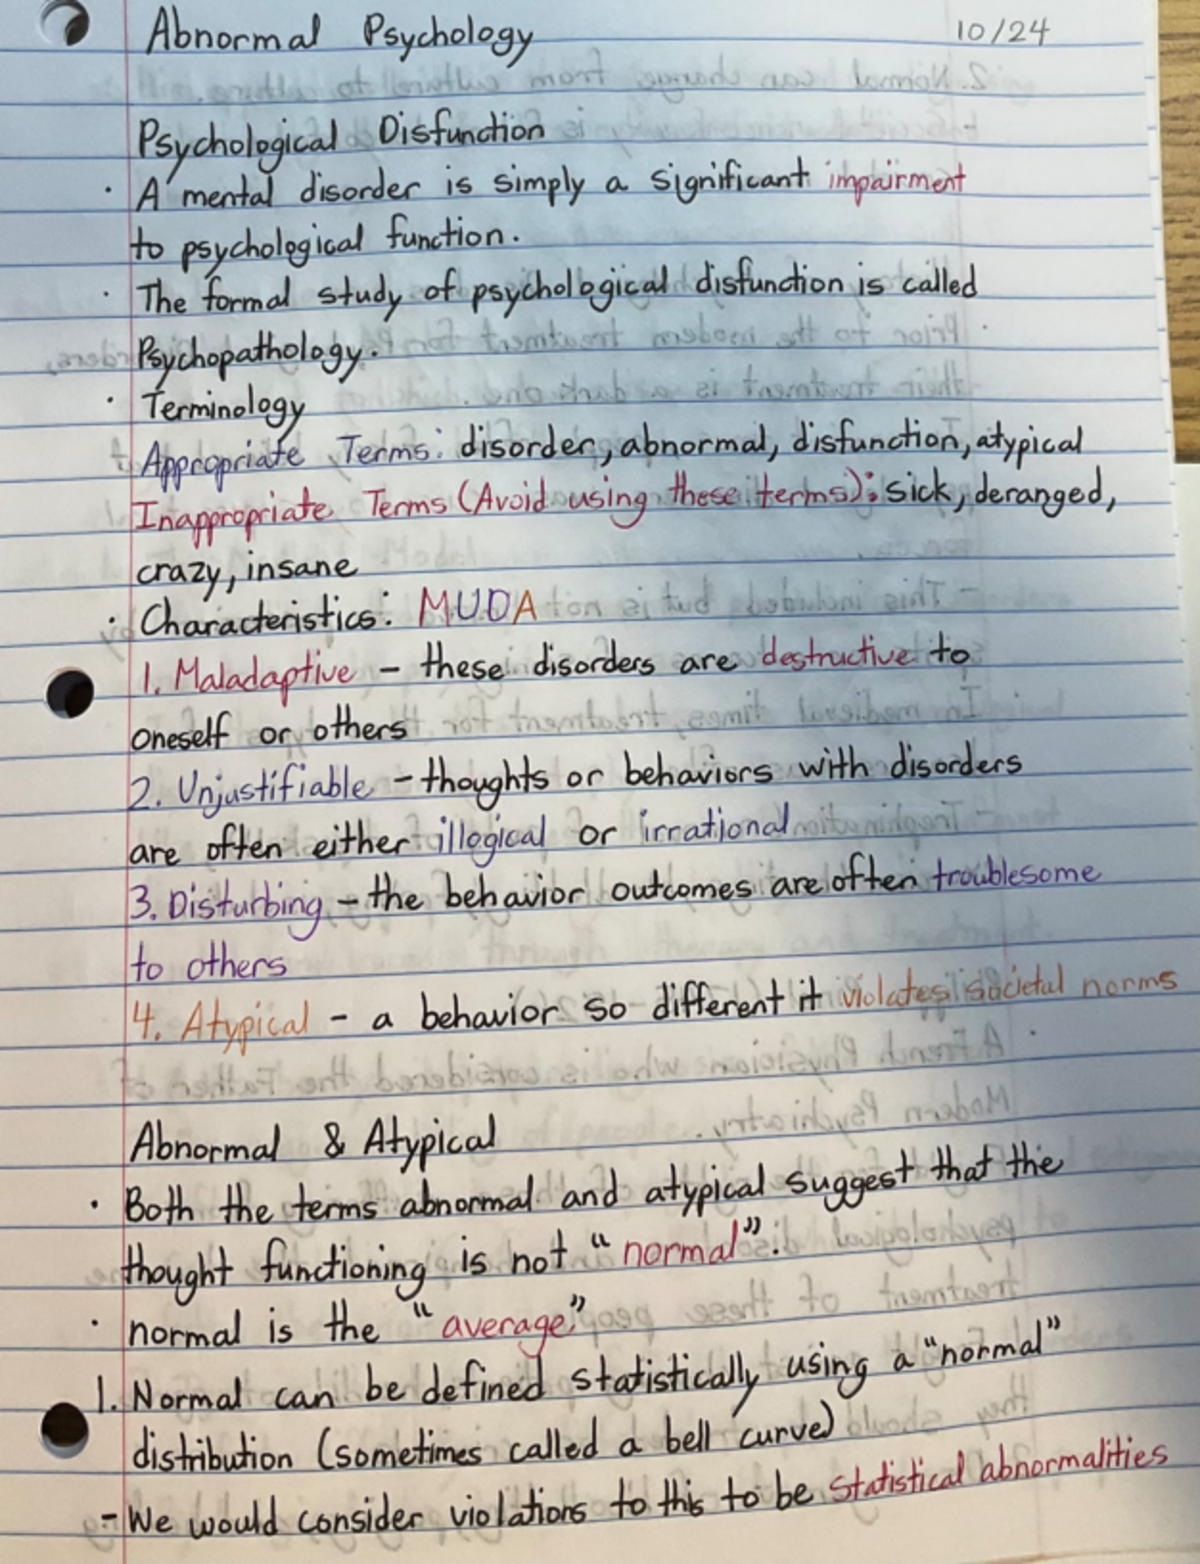 Abnormal Psychology 10/24
Psychological Disfunction
· A mental disorder is simply a significant impairment
to psychological function.
· The formal study of psychological disfunction is called
Psychopathology.
· Terminology
Appropriate Terms: disorder, abnormal, disfunction, atypical
Inappropriate Terms (Avoid using these terms): sick, deranged,
crazy, insane
· Characteristics: MUDA
1. Maladaptive – these disorders are destructive to
oneself or others
2. Unjustifiable – thoughts or behaviors with disorders
are often either illogical or irrational
3. Disturbing – the behavior outcomes are often troublesome
to others
4. Atypical – a behavior so different it violates societal norms
Abnormal & Atypical
· Both the terms abnormal and atypical suggest that the
thought functioning is not "normal".
· normal is the "average."
1. Normal can be defined statistically using a "normal"
distribution (sometimes called a bell curve)
- We would consider violations to this to be statistical abnormalities